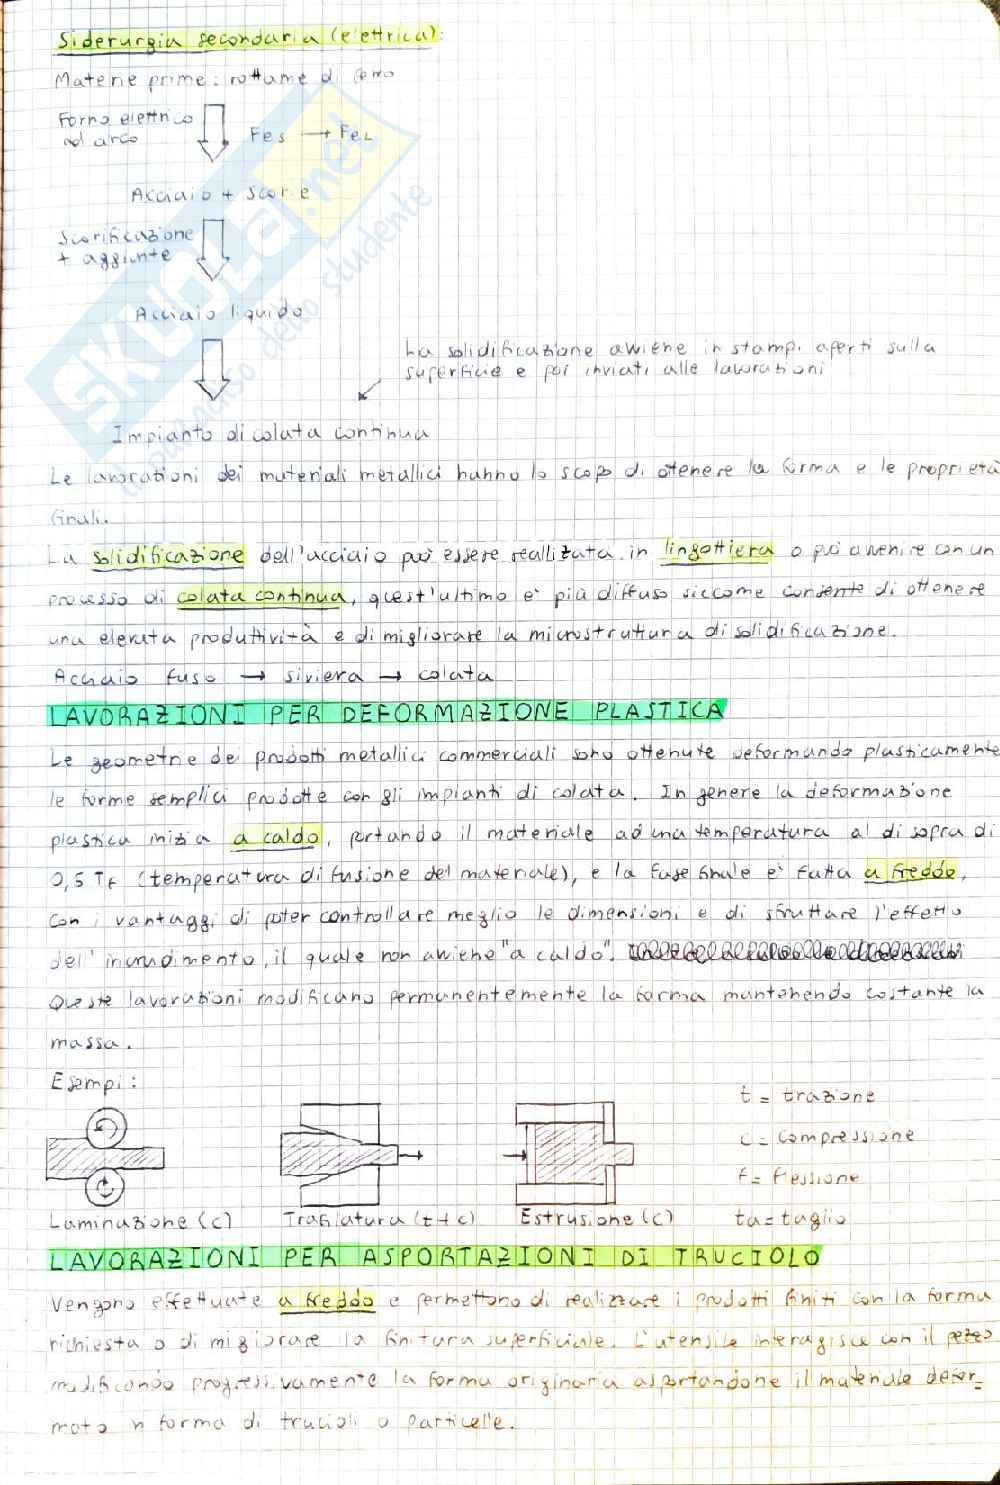 Siderurgia secondaria (elettrica):
Materie prime: rottame di ferro
Forno elettrico
ad arco
Fes → FeL
Acciaio + scorie
Scorificazione
+ aggiunte
Acciaio liquido
La solidificazione avviene in stampi aperti sulla
superficie e poi inviati alle lavorazioni
Impianto di colata continua
Le lavorazioni dei materiali metallici hanno lo scopo di ottenere la forma e le proprietà
finali.
La solidificazione dell'acciaio può essere reallizzata in lingottiera o può avvenire con un
processo di colata continua, quest'ultimo è più diffuso siccome consente di ottenere
una elevata produttività e di migliorare la microstruttura di solidificazione.
Acciaio fuso → siviera → colata
LAVORAZIONI PER DEFORMAZIONE PLASTICA
Le geometrie dei prodotti metallici commerciali sono ottenute deformando plasticamente
le forme semplici prodotte con gli impianti di colata. In genere la deformazione
plastica inizia a caldo, portando il materiale ad una temperatura al di sopra di
0,5 Tf (temperatura di fusione del materiale), e la fase finale è fatta a freddo,
con i vantaggi di poter controllare meglio le dimensioni e di sfruttare l'effetto
dell'incrudimento, il quale non avviene "a caldo".
Queste lavorazioni modificano permanentemente la forma mantenendo costante la
massa.
Esempi:
t = trazione
c = compressione
f = flessione
ta = taglio
Laminazione (c)
Trafilatura (t+c)
Estrusione (c)
LAVORAZIONI PER ASPORTAZIONI DI TRUCIOLO
Vengono effettuate a freddo e permettono di realizzare i prodotti finiti con la forma
richiesta o di migliorare la finitura superficiale. L'utensile interagisce con il pezzo
modificando progressivamente la forma originaria asportandone il materiale defor-
mato in forma di trucioli o particelle.
SKUOLA.net
il paradiso dello studente